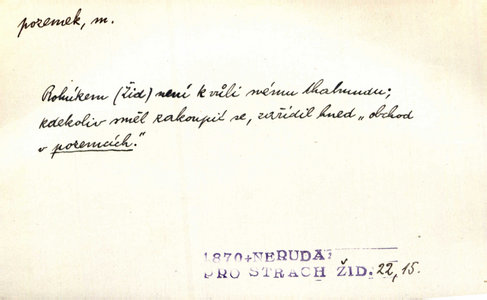 pozemek, m.
Rolníkem (Žid) není k vůli svému thalmudu;
kdekoliv směl zakoupit se, zařídil hned „obchod
v pozemcích."
1870+NERUDA:
PRO STRACH ŽID. 22, 15.